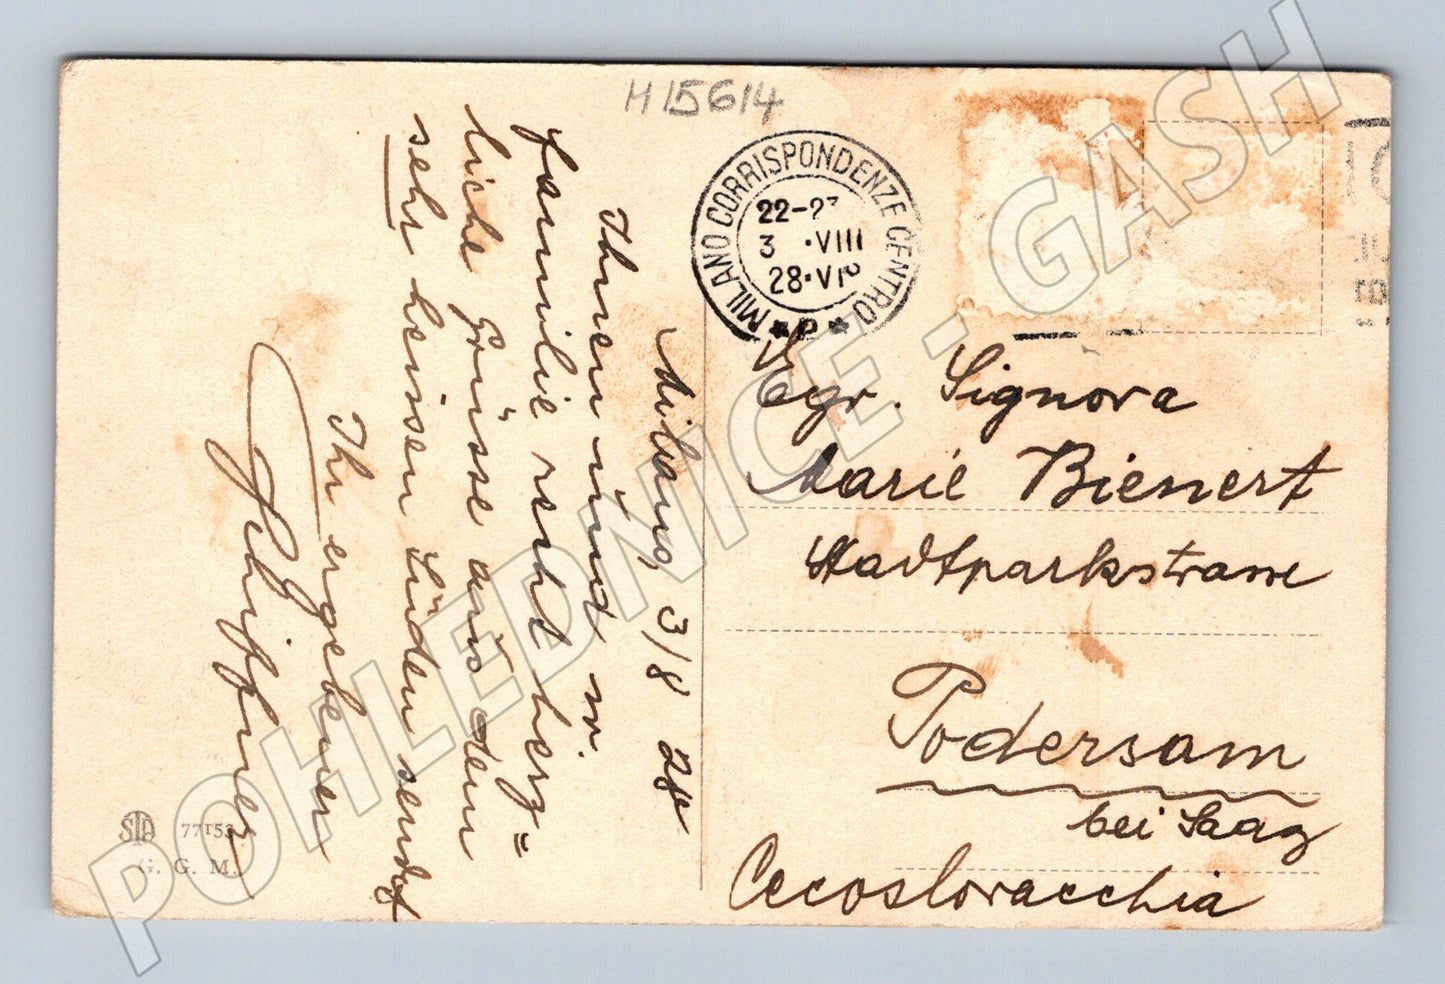 H15614
MILANO CORRISPONDENZE CENTRO
22-23
3 ·VIII
28·VI
* P *
Milano, 3/8 28
Ihnen und w.
Familie recht herz=
liche Grüsse aus dem
sehr heissen Süden sendet
Ihr ergebener
Schiffner
Egr. Signora
Marie Bienert
Stadtparkstrasse
Podersam
bei Saaz
Cecoslovacchia
STA 77153
G. G. M.
POHLEDNICE - GASH